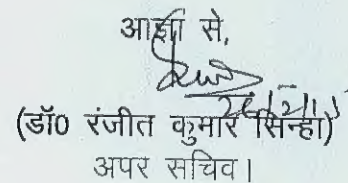 आज्ञा से,
(डॉ0 रंजीत कुमार सिन्हा)
अपर सचिव।